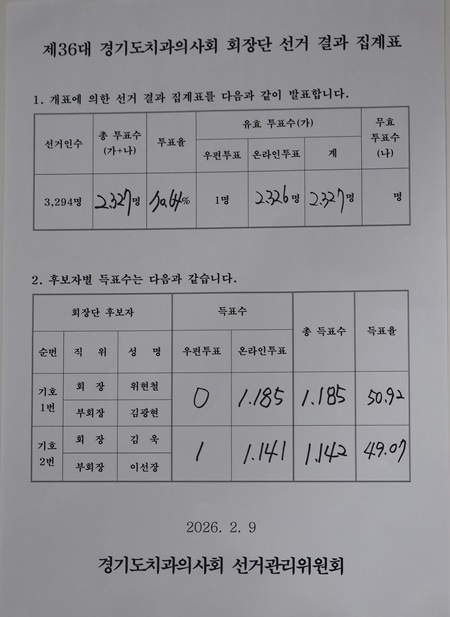 제36대 경기도치과의사회 회장단 선거 결과 집계표
1. 개표에 의한 선거 결과 집계표를 다음과 같이 발표합니다.
선거인수 총 투표수 (가+나) 투표율 유효 투표수(가) 무효 투표수 (나)
우편투표 온라인투표 계
3,294명 2.327명 70.64% 1명 2326명 2.327명 명
2. 후보자별 득표수는 다음과 같습니다.
회장단 후보자 득표수 총 득표수 득표율
순번 직 위 성 명 우편투표 온라인투표
기호 1번 회 장 위현철 0 1.185 1.185 50.92
부회장 김광현
기호 2번 회 장 김 욱 1 1.141 1.142 49.07
부회장 이선장
2026. 2. 9
경기도치과의사회 선거관리위원회